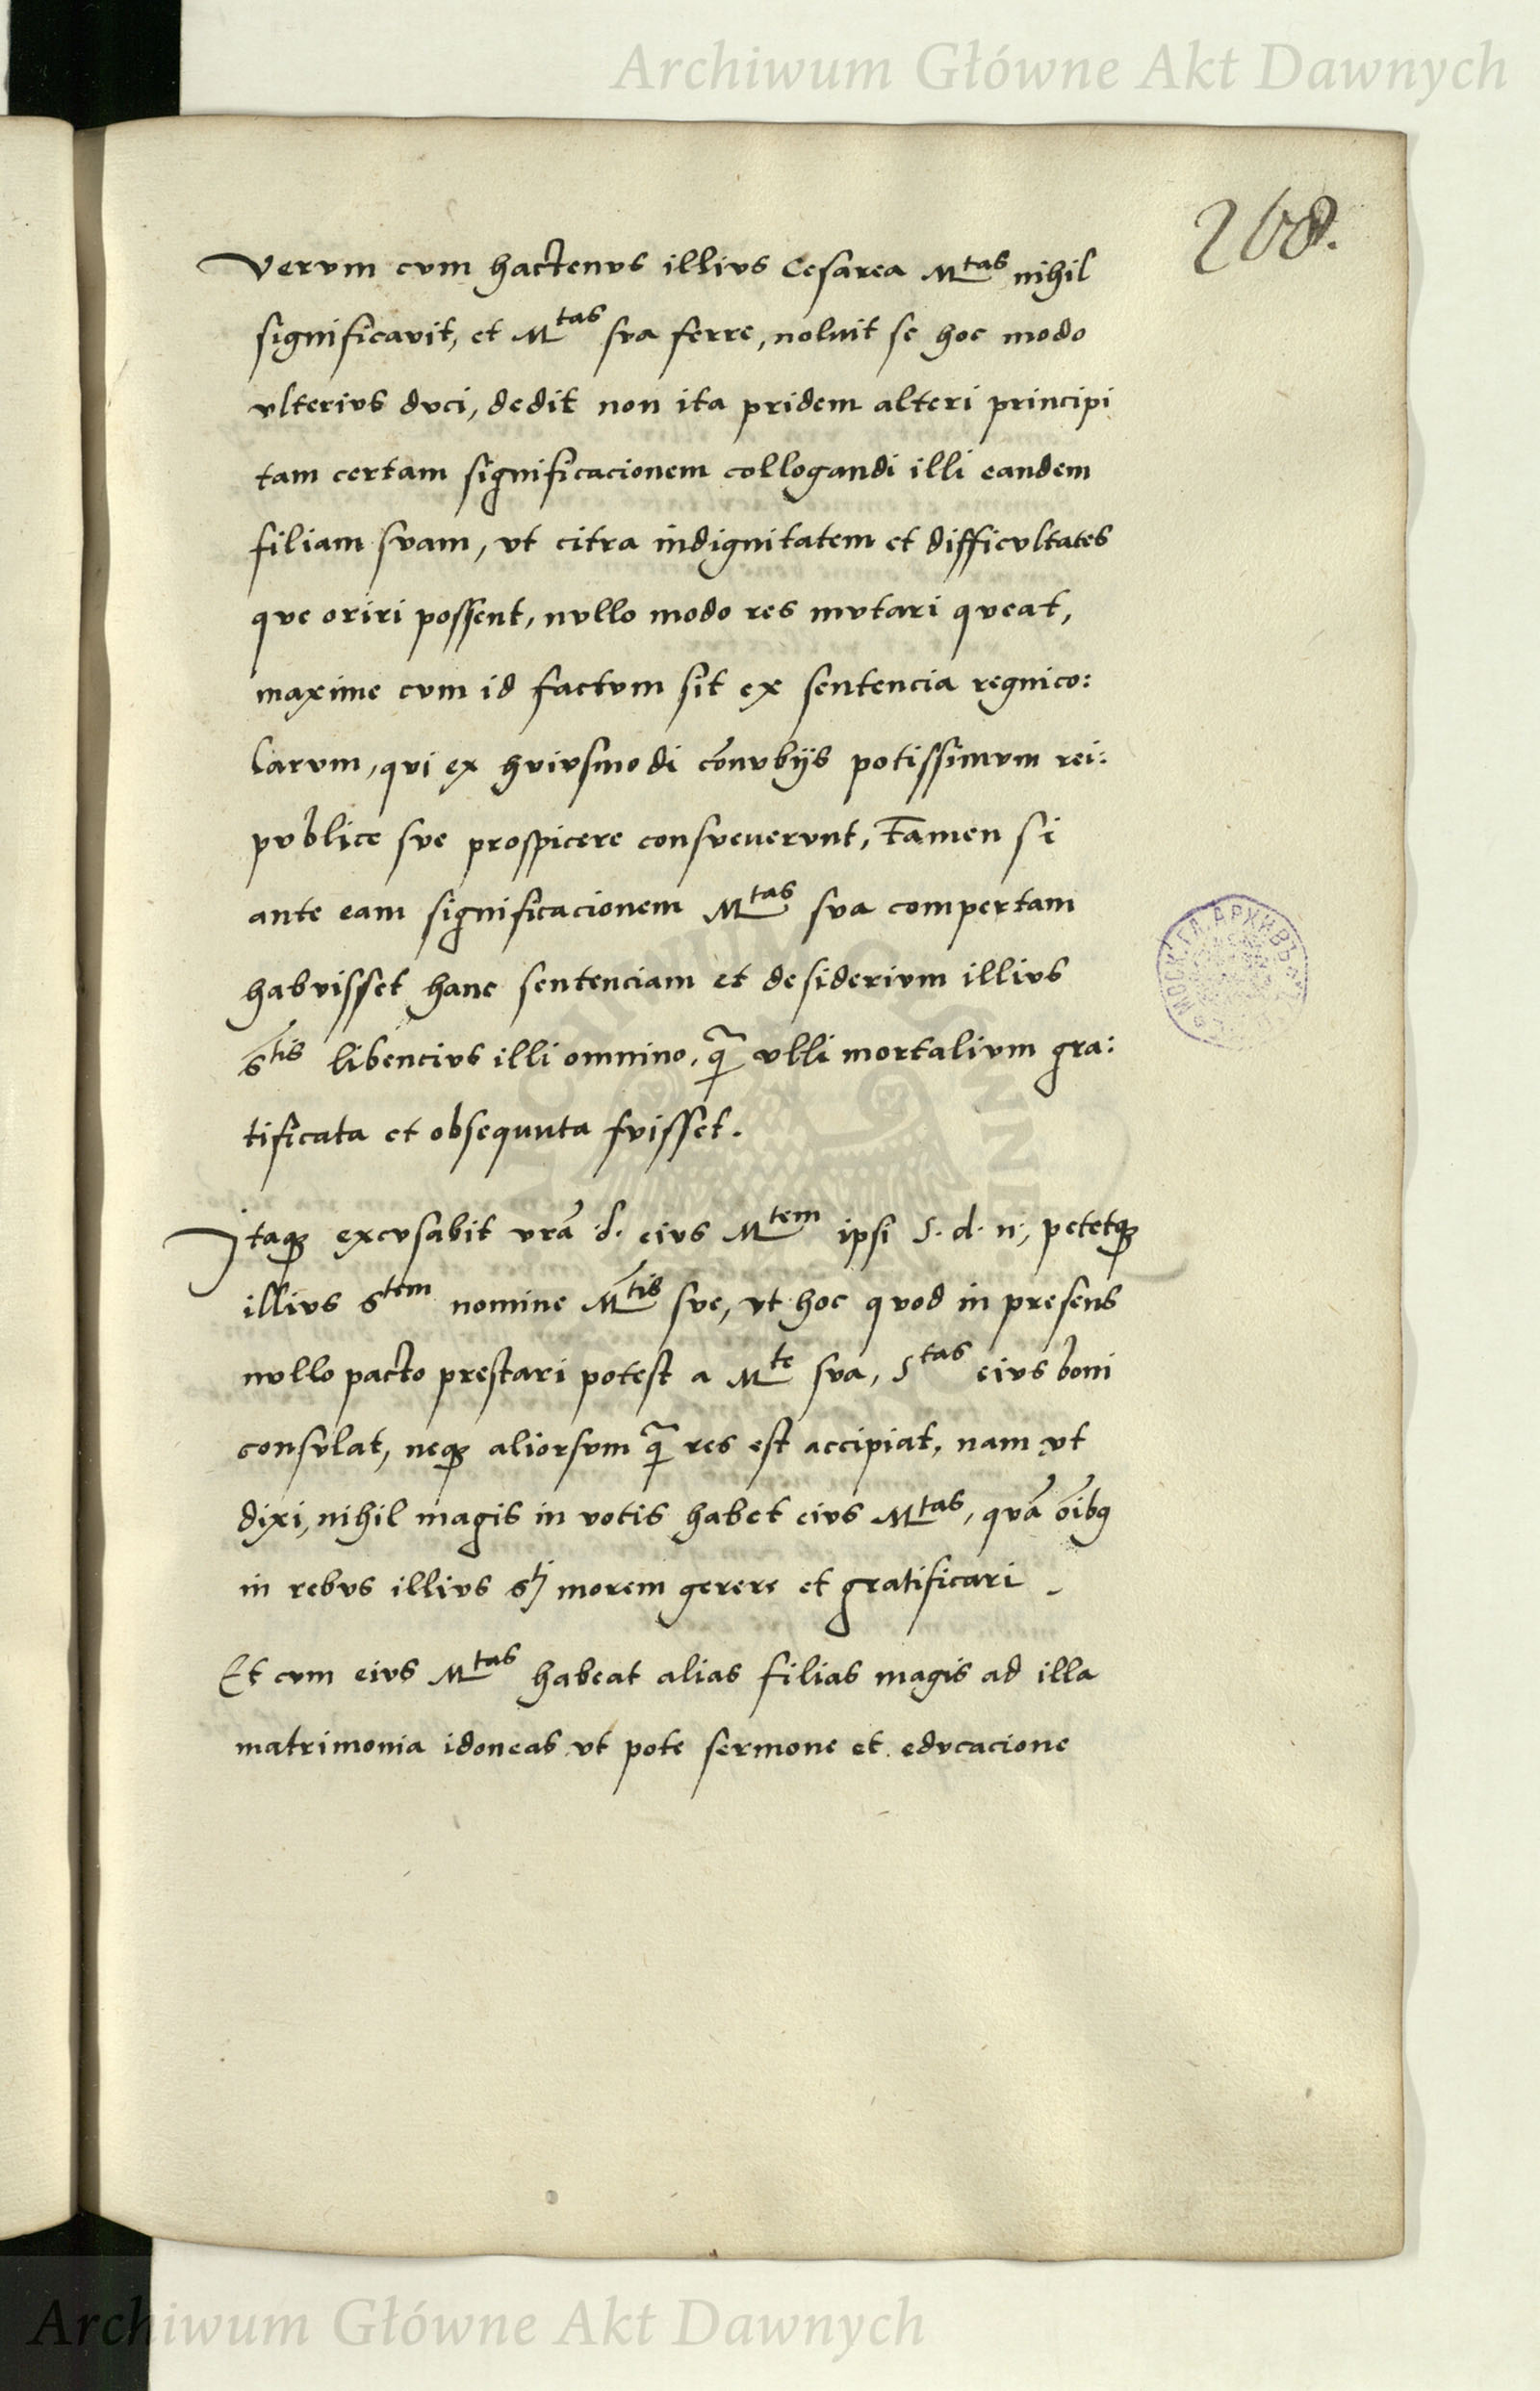 Archiwum Główne Akt Dawnych
268.
Verum cum hactenus illius Cesarea M^tas nihil
significavit, et M^tas sua ferre, noluit se hoc modo
ulterius duci, dedit non ita pridem alteri principi
tam certam significacionem collogandi illi eandem
filiam suam, ut citra indignitatem et difficultates
que oriri possent, nullo modo res mutari queat,
maxime cum id factum sit ex sentencia regnico:
larum, qui ex huiusmodi cōnubijs potissimum rei:
publice sue prospicere consueuerunt, tamen si
ante eam significacionem M^tas sua compertam
habuisset hanc sentenciam et desiderium illius
S^tis libencius illi omnino, q̄ ulli mortalium gra:
tificata et obsequuta fuisset.
Itaqȝ excusabit vrā d. eius M^tem ipsi S. d. n, petetqȝ
illius S^tem nomine M^tis sue, ut hoc quod in presens
nullo pacto prestari potest a M^te sua, S^tas eius boni
consulat, neqȝ aliorsum q̄ res est accipiat, nam ut
dixi, nihil magis in votis habet eius M^tas, quā oībq
in rebus illius S^ti morem gerere et gratificari.
Et cum eius M^tas habeat alias filias magis ad illa
matrimonia idoneas ut pote sermone et educacione
Archiwum Główne Akt Dawnych